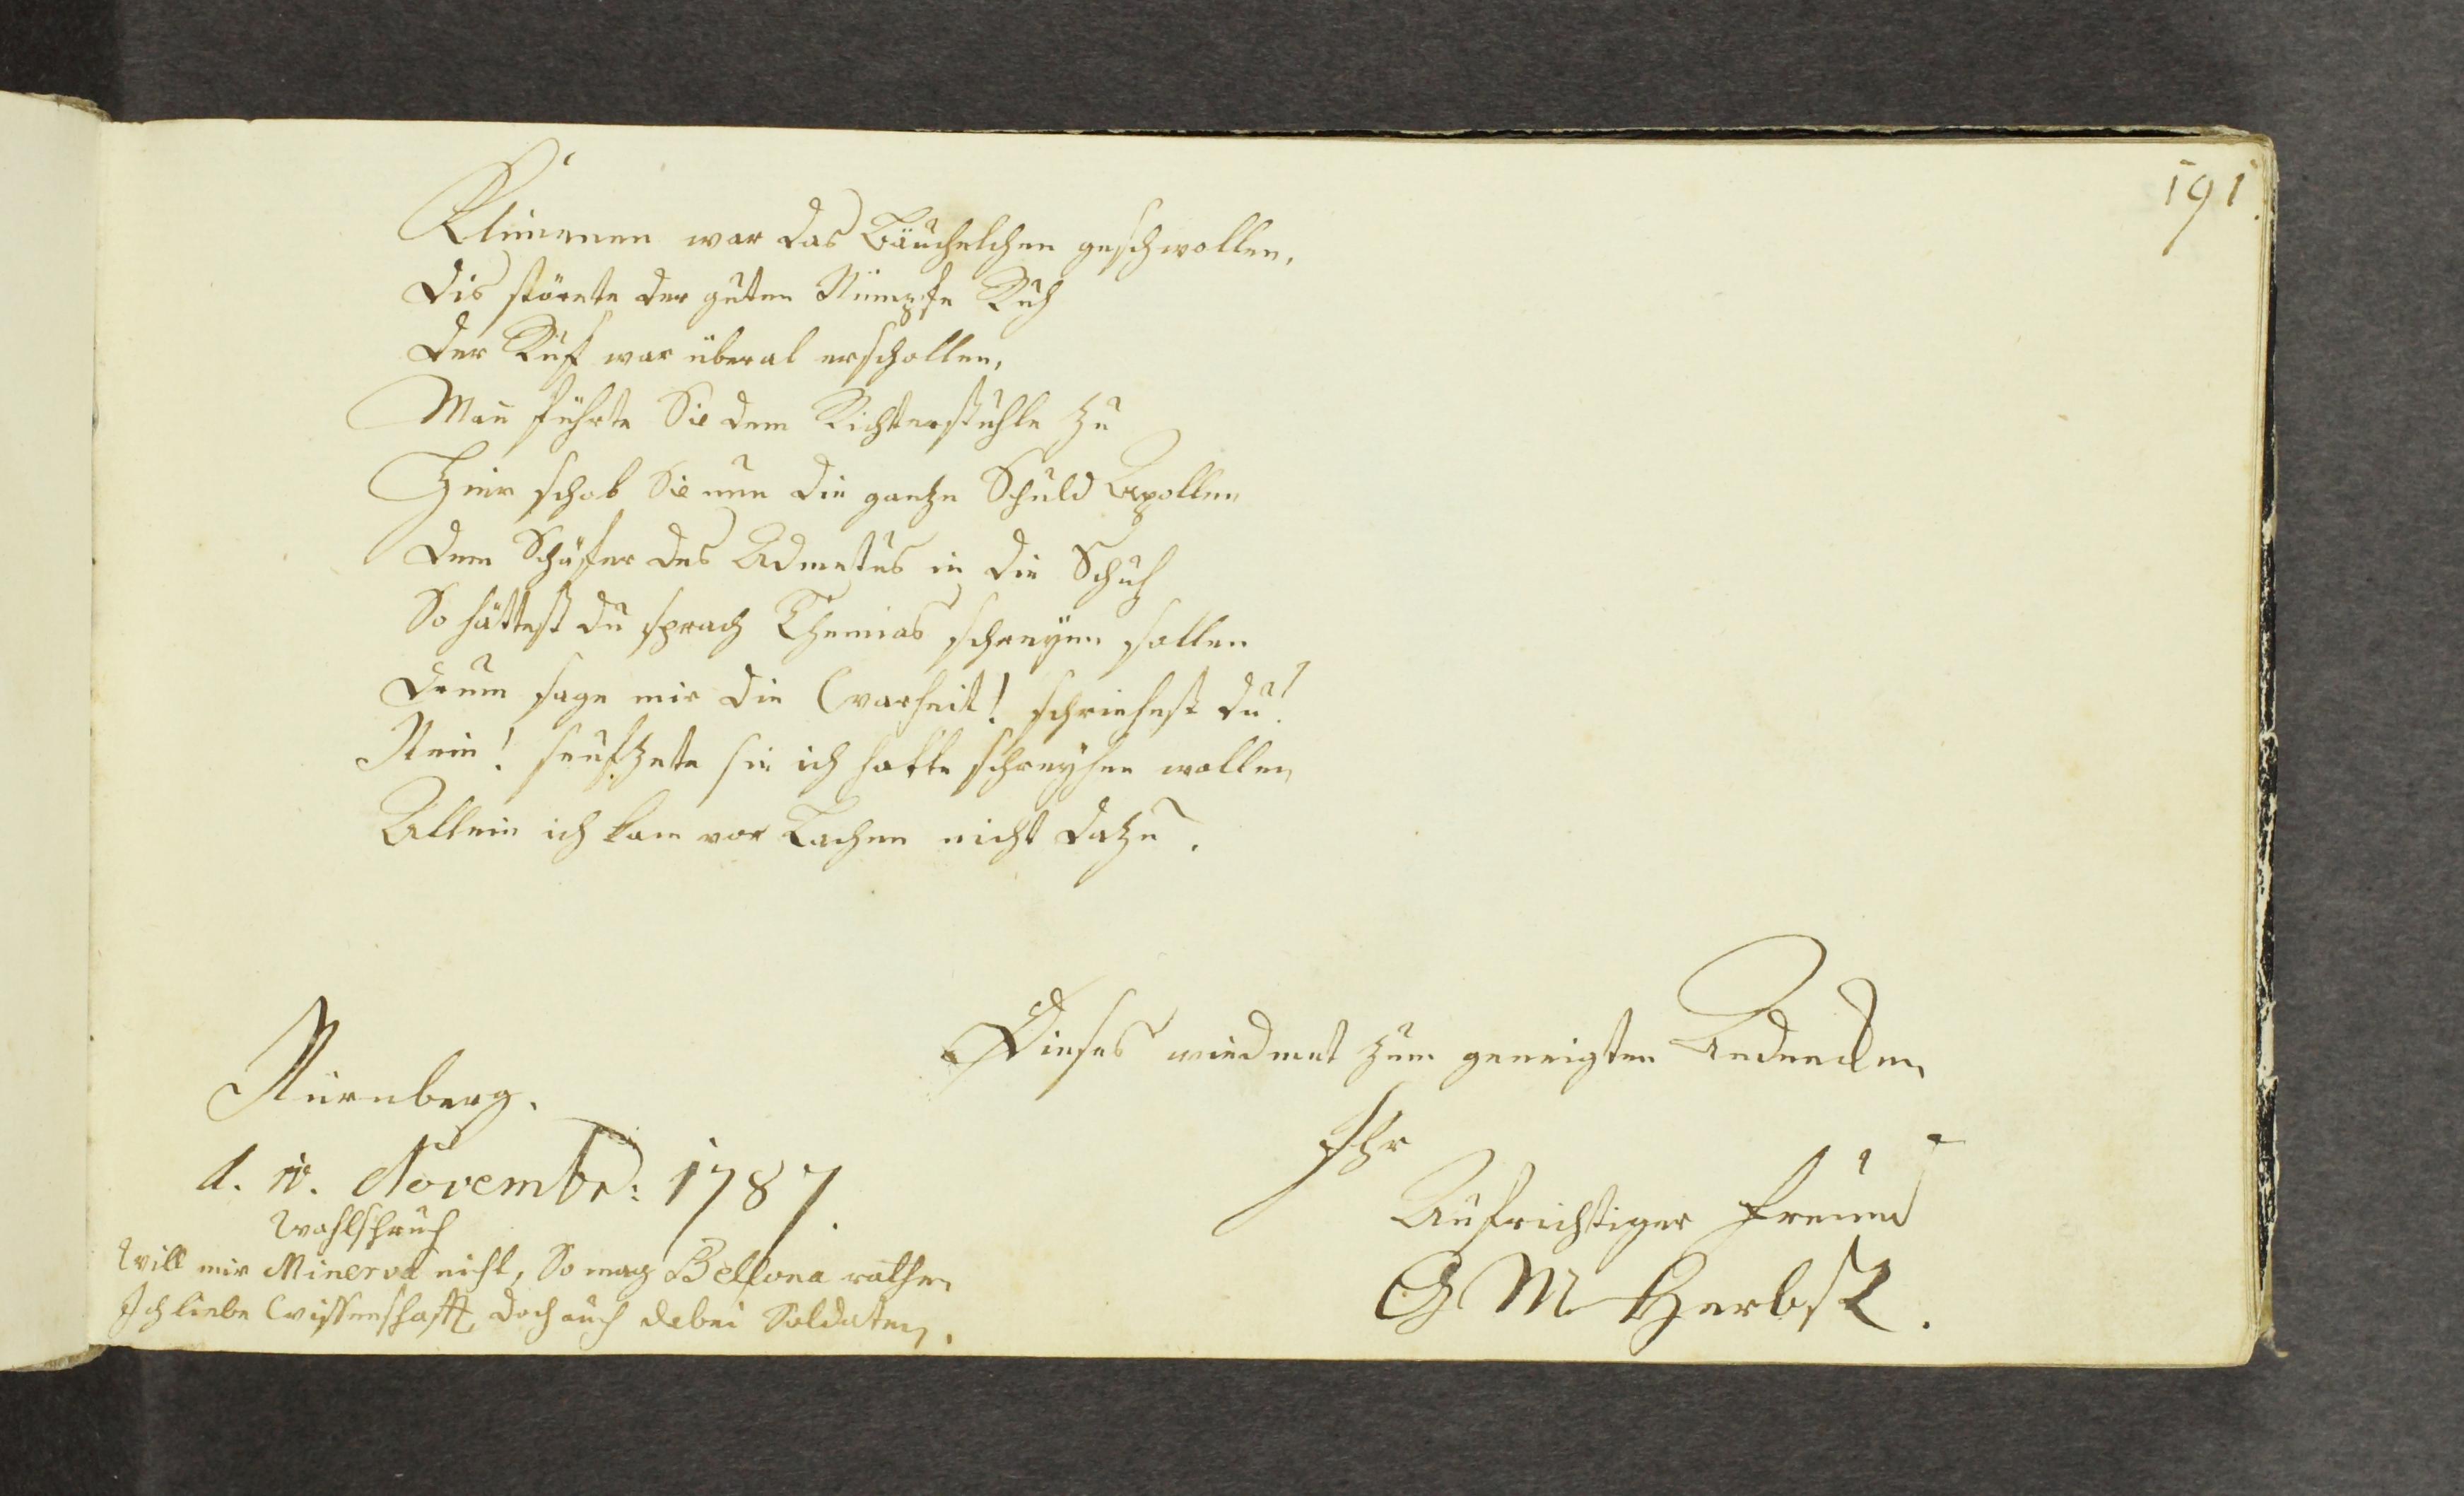 191.
Klimenen war das Bäuchelchen geschwollen,
Dis störete der guten Nimpfe Ruh
Der Ruf war überal erschollen,
Man führte Sie dem Richterstuhle zu
Hier schob Sie nun die gantze Schuld Apollen
Dem Schäfer des Admetus in die Schuh
So hättest du sprach Themias schreyen sollen
Drum sage mir die Warheit! schriehest du?
Nein! seufzete sie ich hatte schreyhen wollen
Allein ich kam vor Lachen nicht dazu.
Dieses wiedmet zum geneigten Andencken
Ihr
Aufrichtiger Freund
G M Herbst.
Nürnberg.
d. 11. Novembr: 1787.
Wahlspruch
Will mir Minerva nicht, So mag Bellona rathen
Ich liebe Wissenschafft, doch auch dabei Soldaten.